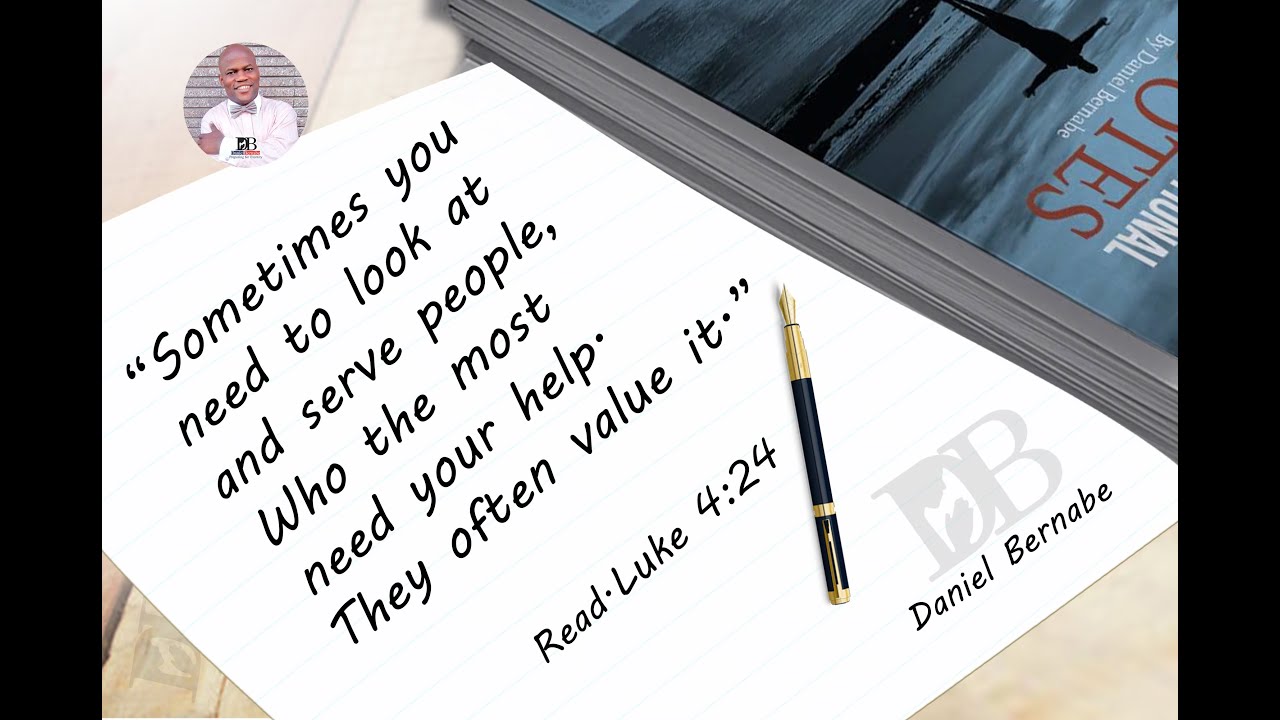 “Sometimes you
need to look at
and serve people,
Who the most
need your help.
They often value it.”
Read.Luke 4:24
DB
Daniel Bernabe
By Daniel Bernabe
OTES
IONAL
DB